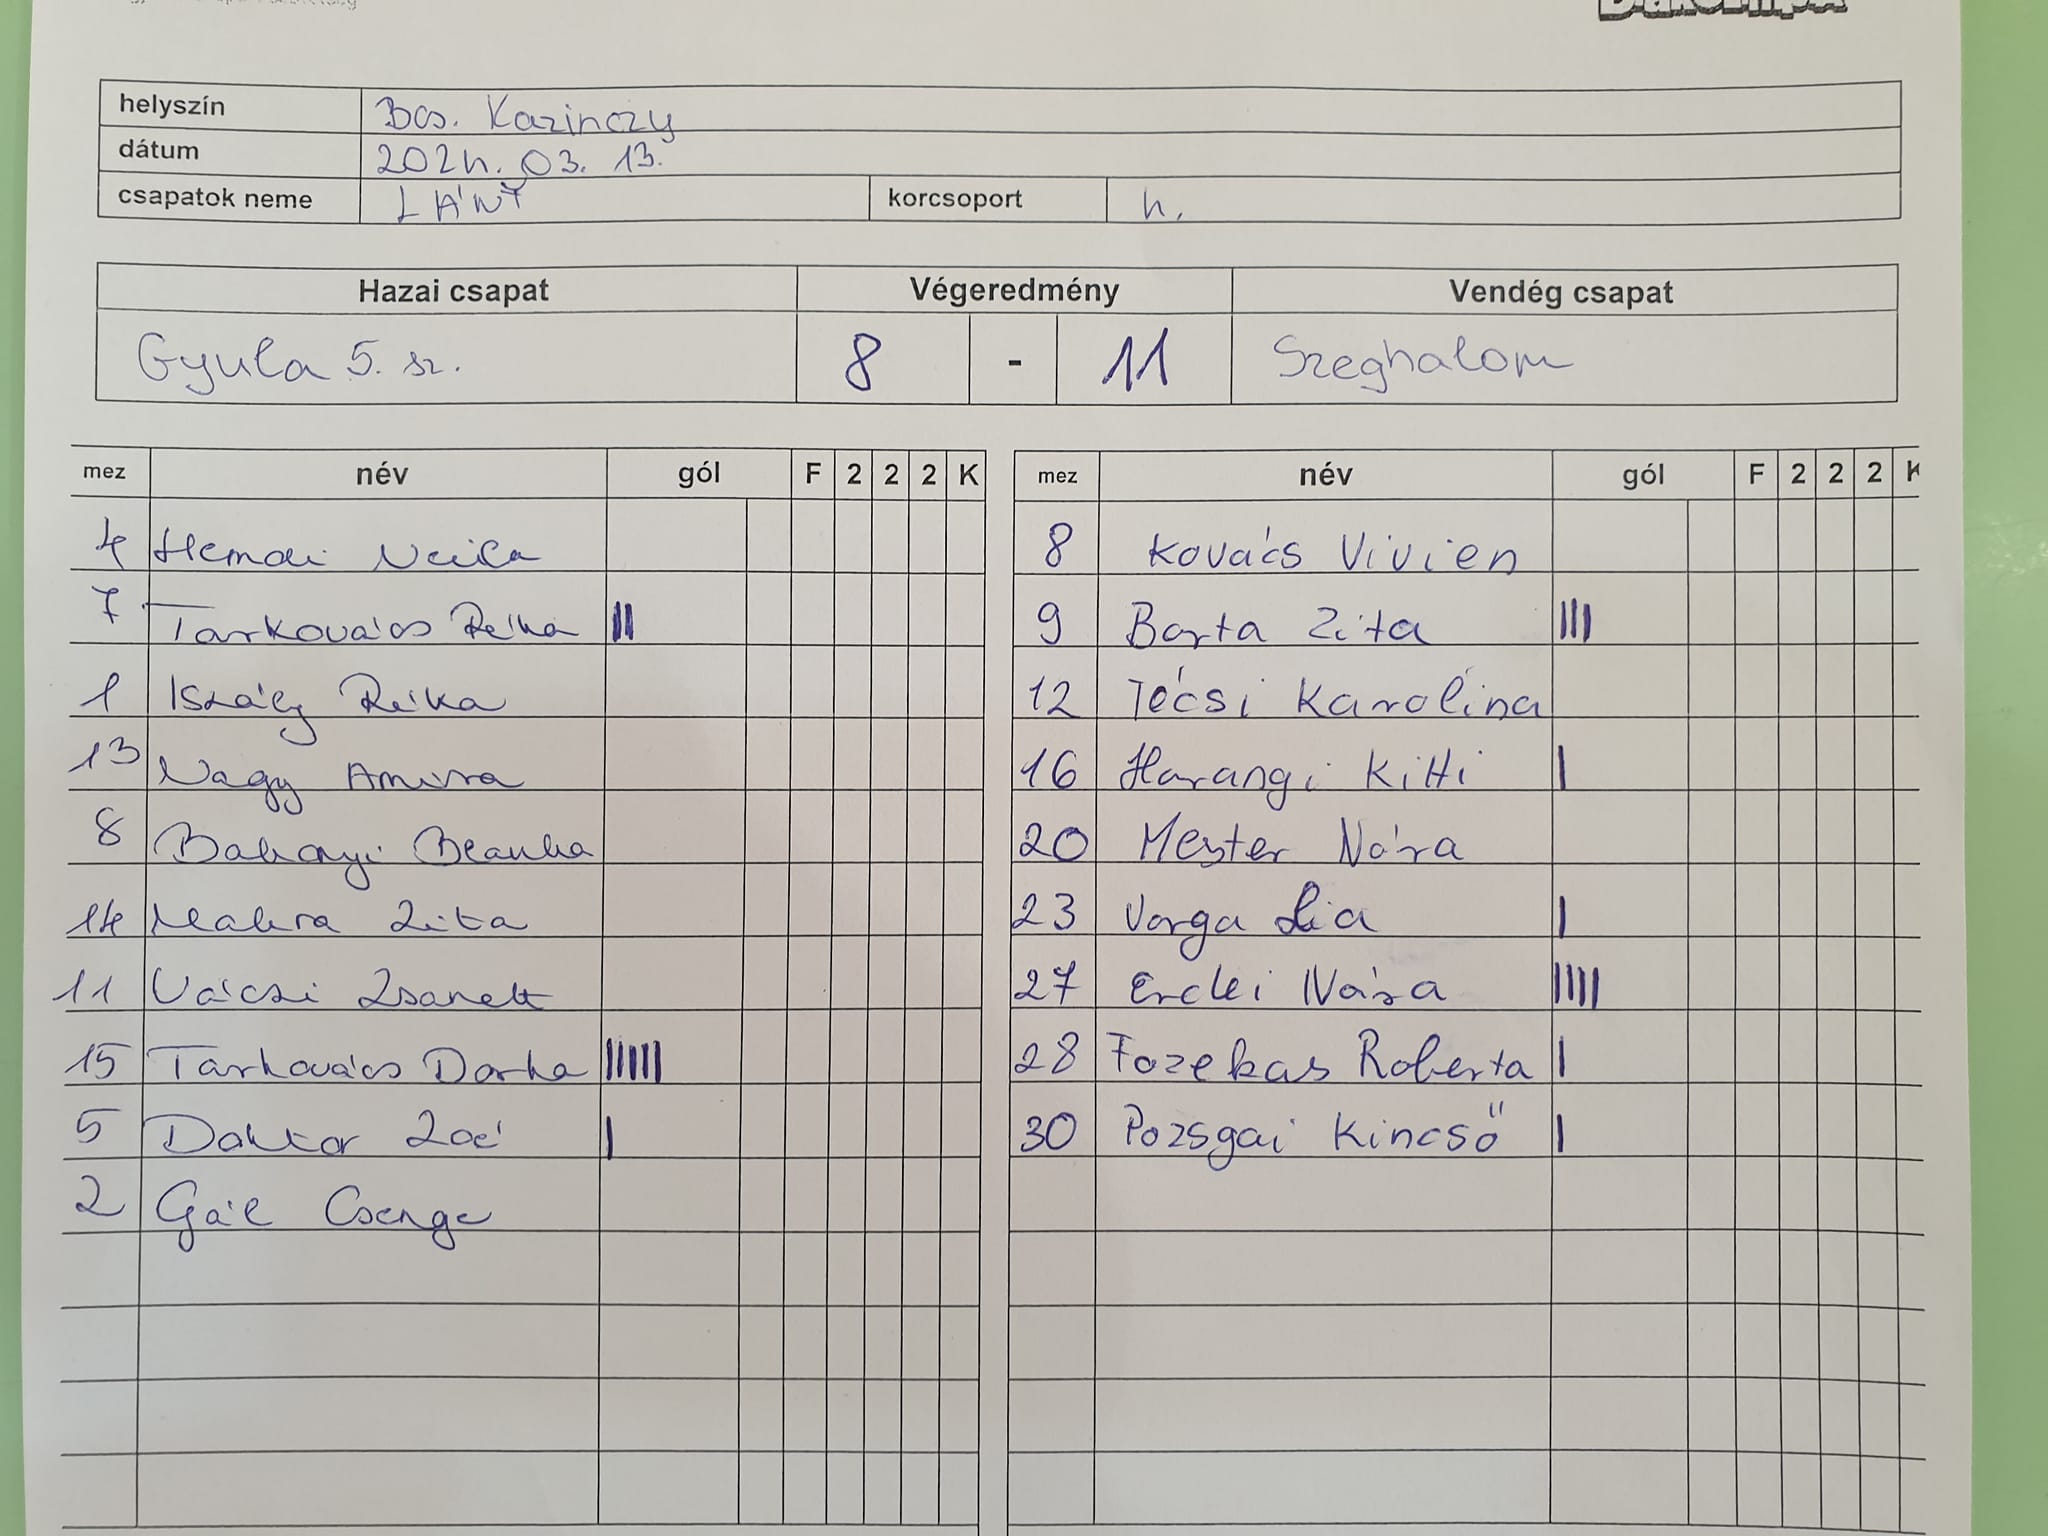 helyszín Bcs. Kazinczy
dátum 2024. 03. 13.
csapatok neme LÁNY korcsoport 4.
Hazai csapat Végeredmény Vendég csapat
Gyula 5. sz. 8 - 11 Szeghalom
mez név gól F 2 2 2 K mez név gól F 2 2 2 K
4 8 Kovács Vivien
7 Tarkovács Réka || 9 Barta Zita |||
1 Iszály Réka 12 Técsi Karolina
13 Nagy Amira 16 Harangi Kitti |
8 Bakonyi Blanka 20 Mester Nóra
14 Makra Zita 23 Varga Lia |
11 Vácsi Zsanett 27 Erdei Nóra ||||
15 Tarkovács Dorka ||||| 28 Fazekas Roberta |
5 Doktor Zoé | 30 Pozsgai Kincső |
2 Gál Csenge